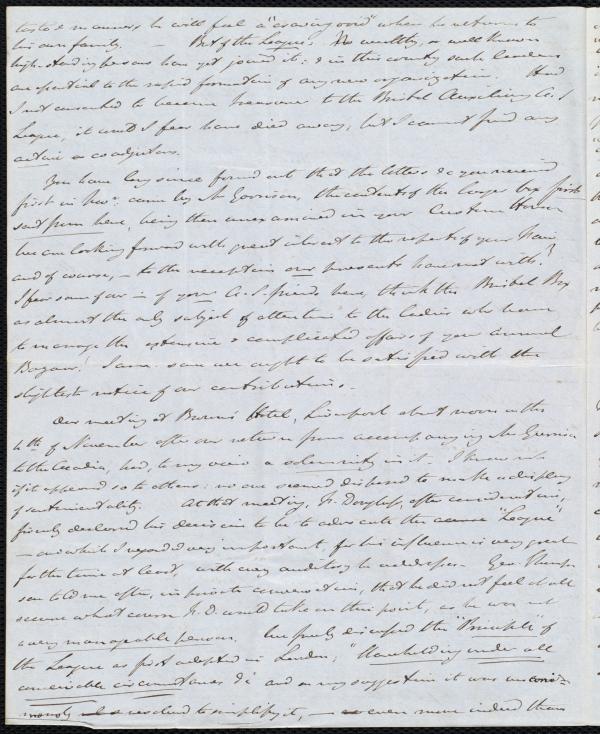 tastes & manners, he will feel a "craving void" when he returns to
his own family. — But of the League. No wealthy, or well known
high-standing persons have yet joined it: & in this country such leaders
are essential to the rapid formation of any new organization. Had
I not consented to become treasurer to the Bristol Auxiliary A. S.
League, it would I fear have died away, but I cannot find any
active coadjutors.
You have long since found out that the letters &c you received
first in Novr. came by Mr Garrison, the contents of the large box first
sent from here, being then unexamined in your Custom House
We are looking forward with great interest to the report of your Fair
and of course, — to the reception our presents have met with.
I fear some few — of your A. S. friends here, think this Bristol Box
as almost the only subject of attention to the Ladies who have
to manage the extensive & complicated affairs of your Annual
Bazaar! I am sure we ought to be satisfied with the
slightest notice of our contributions.
Our meeting at Brown's Hotel, Liverpool about noon on the
4th of November after our return from accompanying Mr Garrison
to the Acadia, had, to my view a solemnity in it. I know not
if it appeared so to others: no one seemed disposed to make a display
of sentimentality. At that meeting, F. Douglass, after consideration,
firmly declared his decision to be to advocate the "League"
— on which I regard as very important, for his influence is very great
for the time at least, with every auditory he addresses. Geo. Thomp-
son told me after, in private conversation, that he did not feel at all
secure what course F. D. would take on this point, as he was not
a very manageable person. We freely discussed the "Principle" of
the League as first adopted in London, "Slaveholding under all
conceivable circumstances &c" and on my suggestion it was unani-
mously resolved to simplify it, — even more indeed than